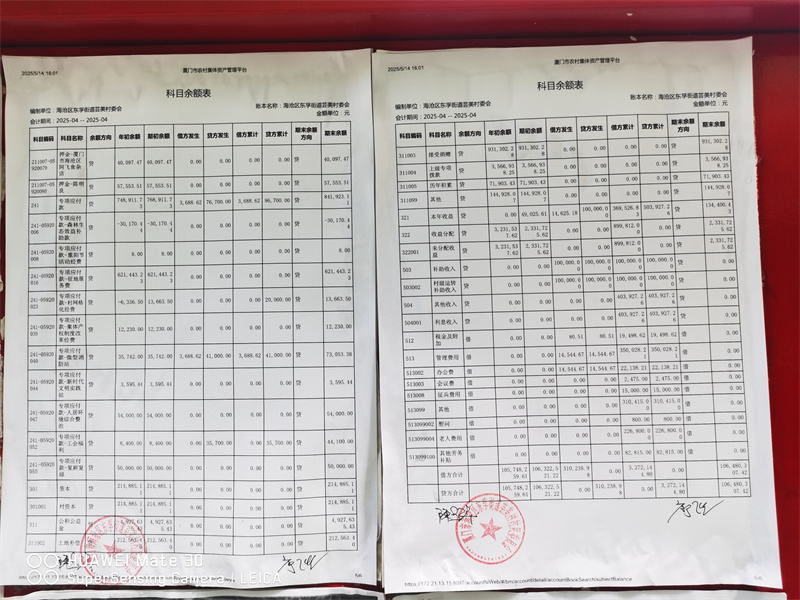 2025/5/14 16:01
厦门市农村集体资产管理平台
科目余额表
编制单位：海沧区东孚街道芸美村委会
账本名称：海沧区东孚街道芸美村委会
会计期间：2025-04 -- 2025-04
金额单位：元
科目编码 科目名称 余额方向 年初余额 期初余额 借方发生 贷方发生 借方累计 贷方累计 期末余额方向 期末余额
211007-05920079 押金-厦门市海沧区阿飞食杂店 贷 40,097.47 40,097.47 0.00 0.00 0.00 0.00 贷 40,097.47
211007-05920080 押金-陈明良 贷 57,553.51 57,553.51 0.00 0.00 0.00 0.00 贷 57,553.51
241 专项应付款 贷 3,688.62 76,700.00 3,688.62 96,700.00 贷 841,923.11
241-05920006 专项应付款-森林生态效益补助款 贷 -30,170.44 -30,170.44 0.00 0.00 0.00 0.00 贷 -30,170.44
241-05920008 专项应付款-重阳节活动经费 贷 8.00 8.00 0.00 0.00 0.00 0.00 贷 8.00
241-05920016 专项应付款-征地服务费 贷 621,443.23 621,443.23 0.00 0.00 0.00 0.00 贷 621,443.23
241-05920023 专项应付款-村网格化经费 贷 -6,336.50 13,663.50 0.00 0.00 0.00 20,000.00 贷 13,663.50
241-05920039 专项应付款-集体产权制度改革经费 贷 12,230.00 12,230.00 0.00 0.00 0.00 0.00 贷 12,230.00
241-05920040 专项应付款-微型消防站 贷 35,742.00 35,742.00 3,688.62 41,000.00 3,688.62 41,000.00 贷 73,053.38
241-05920044 专项应付款-新时代文明实践站 贷 3,595.44 3,595.44 0.00 0.00 0.00 0.00 贷 3,595.44
241-05920047 专项应付款-人居环境综合整治 贷 54,000.00 54,000.00 0.00 0.00 0.00 0.00 贷 54,000.00
241-05920052 专项应付款-工会福利 贷 8,400.00 8,400.00 0.00 35,700.00 0.00 35,700.00 贷 44,100.00
241-05920055 专项应付款-复耕复绿 贷 50,000.00 50,000.00 0.00 0.00 0.00 0.00 贷 50,000.00
301 资本 贷 214,885.11 214,885.11 0.00 0.00 0.00 0.00 贷 214,885.11
301001 村资本 贷 214,885.11 214,885.11 0.00 0.00 0.00 0.00 贷 214,885.11
311 公积公益金 贷 0.00 0.00 0.00 0.00 贷 4,927,635.43
311002 土地补偿 贷 212,563.40 0.00 0.00 0.00 0.00 贷 212,563.40
HUAWEI Mate 30
SuperSensing Camera | LEICA
2025/5/14 16:01
厦门市农村集体资产管理平台
科目余额表
编制单位：海沧区东孚街道芸美村委会
账本名称：海沧区东孚街道芸美村委会
会计期间：2025-04 -- 2025-04
金额单位：元
科目编码 科目名称 余额方向 年初余额 期初余额 借方发生 贷方发生 借方累计 贷方累计 期末余额方向 期末余额
311003 接受捐赠 贷 931,302.28 931,302.28 0.00 0.00 0.00 0.00 贷 931,302.28
311004 上级专项拨款 贷 3,566,938.25 3,566,938.25 0.00 0.00 0.00 0.00 贷 3,566,938.25
311005 历年积累 贷 71,903.43 71,903.43 0.00 0.00 0.00 0.00 贷 71,903.43
311099 其他 贷 144,928.07 144,928.07 0.00 0.00 0.00 0.00 贷 144,928.07
321 本年收益 贷 0.00 49,025.61 14,625.18 100,000.00 369,526.83 503,927.26 贷 134,400.43
322 收益分配 贷 3,231,537.62 2,331,725.62 0.00 0.00 899,812.00 0.00 贷 2,331,725.62
322001 未分配收益 贷 3,231,537.62 2,331,725.62 0.00 0.00 899,812.00 0.00 贷 2,331,725.62
503 补助收入 贷 0.00 0.00 100,000.00 100,000.00 100,000.00 100,000.00 贷 0.00
503002 村级运转补助收入 贷 0.00 0.00 100,000.00 100,000.00 100,000.00 100,000.00 贷 0.00
504 其他收入 贷 0.00 0.00 0.00 0.00 403,927.26 403,927.26 贷 0.00
504001 利息收入 贷 0.00 0.00 0.00 0.00 403,927.26 403,927.26 贷 0.00
512 税金及附加 借 0.00 0.00 80.51 80.51 19,498.62 19,498.62 借 0.00
513 管理费用 借 0.00 0.00 14,544.67 14,544.67 350,028.21 350,028.21 借 0.00
513002 办公费 借 0.00 0.00 14,544.67 14,544.67 22,138.21 22,138.21 借 0.00
513003 会议费 借 0.00 0.00 0.00 0.00 2,475.00 2,475.00 借 0.00
513008 征兵费用 借 0.00 0.00 0.00 0.00 15,000.00 15,000.00 借 0.00
513099 其他 借 0.00 0.00 0.00 0.00 310,415.00 310,415.00 借 0.00
513099002 慰问 借 0.00 0.00 0.00 0.00 800.00 800.00 借 0.00
513099004 老人费用 借 0.00 0.00 0.00 0.00 226,800.00 226,800.00 借 0.00
513099100 其他开务补贴 借 0.00 0.00 0.00 0.00 82,815.00 82,815.00 借 0.00
借方合计 105,748,259.61 106,322,521.22 310,238.98 0.00 3,272,144.80 0.00 106,480,307.42
贷方合计 105,748,259.61 106,322,521.22 0.00 310,238.98 0.00 3,272,144.80 106,480,307.42